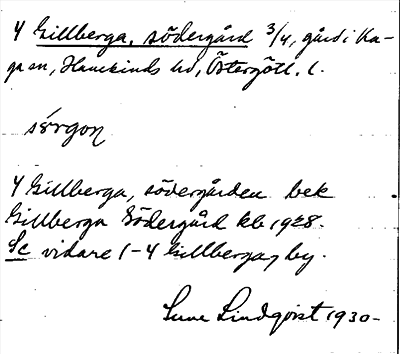 4 Gillberga, södergård 3/4, gård i Ka-
ga sn, Hanekinds hd, Östergötl. l.
sö̀rgo̧n
4 Gillberga, södergården bek
Gillberga Södergård kb 1928.
Se vidare 1-4 Gillberga, by.
Sune Lindqvist 1930-